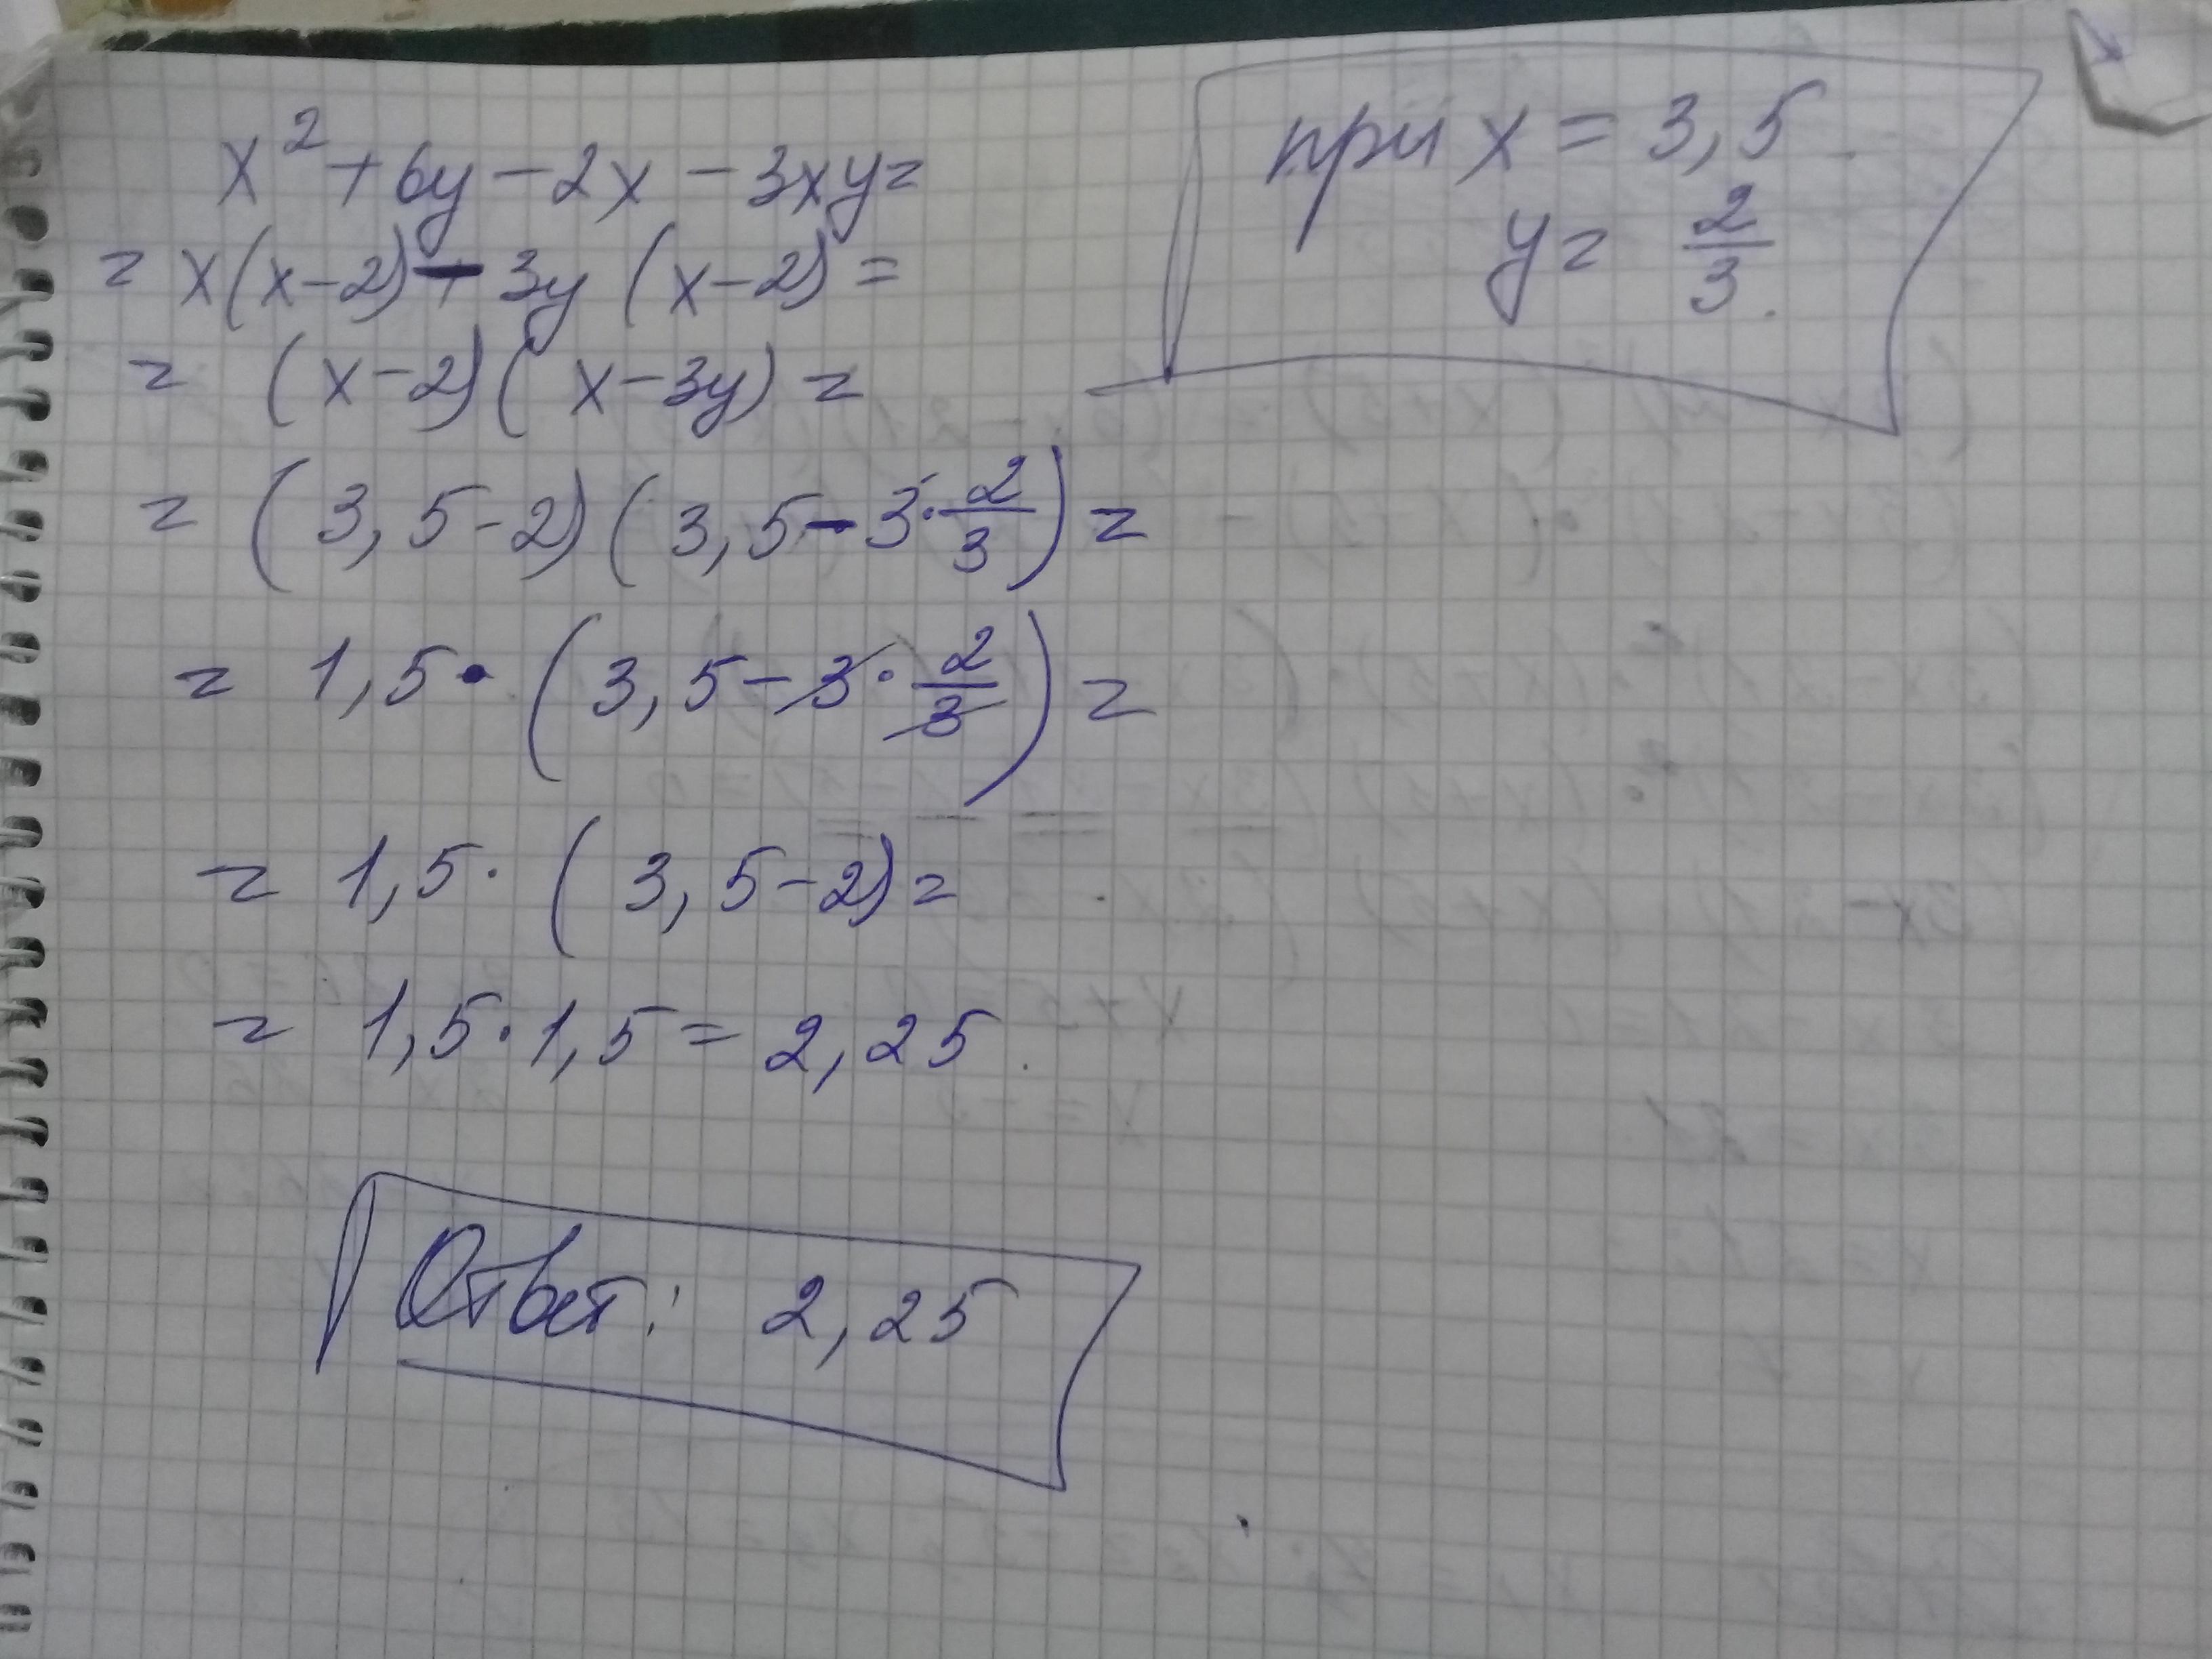 x² + 6y − 2x − 3xy =
при x = 3,5
y = 2/3.
= x(x−2) − 3y (x−2) =
= (x−2)(x−3y) =
= (3,5−2)(3,5−3·2/3) =
= 1,5·(3,5−3·2/3) =
= 1,5·(3,5−2) =
= 1,5·1,5 = 2,25.
Ответ: 2,25